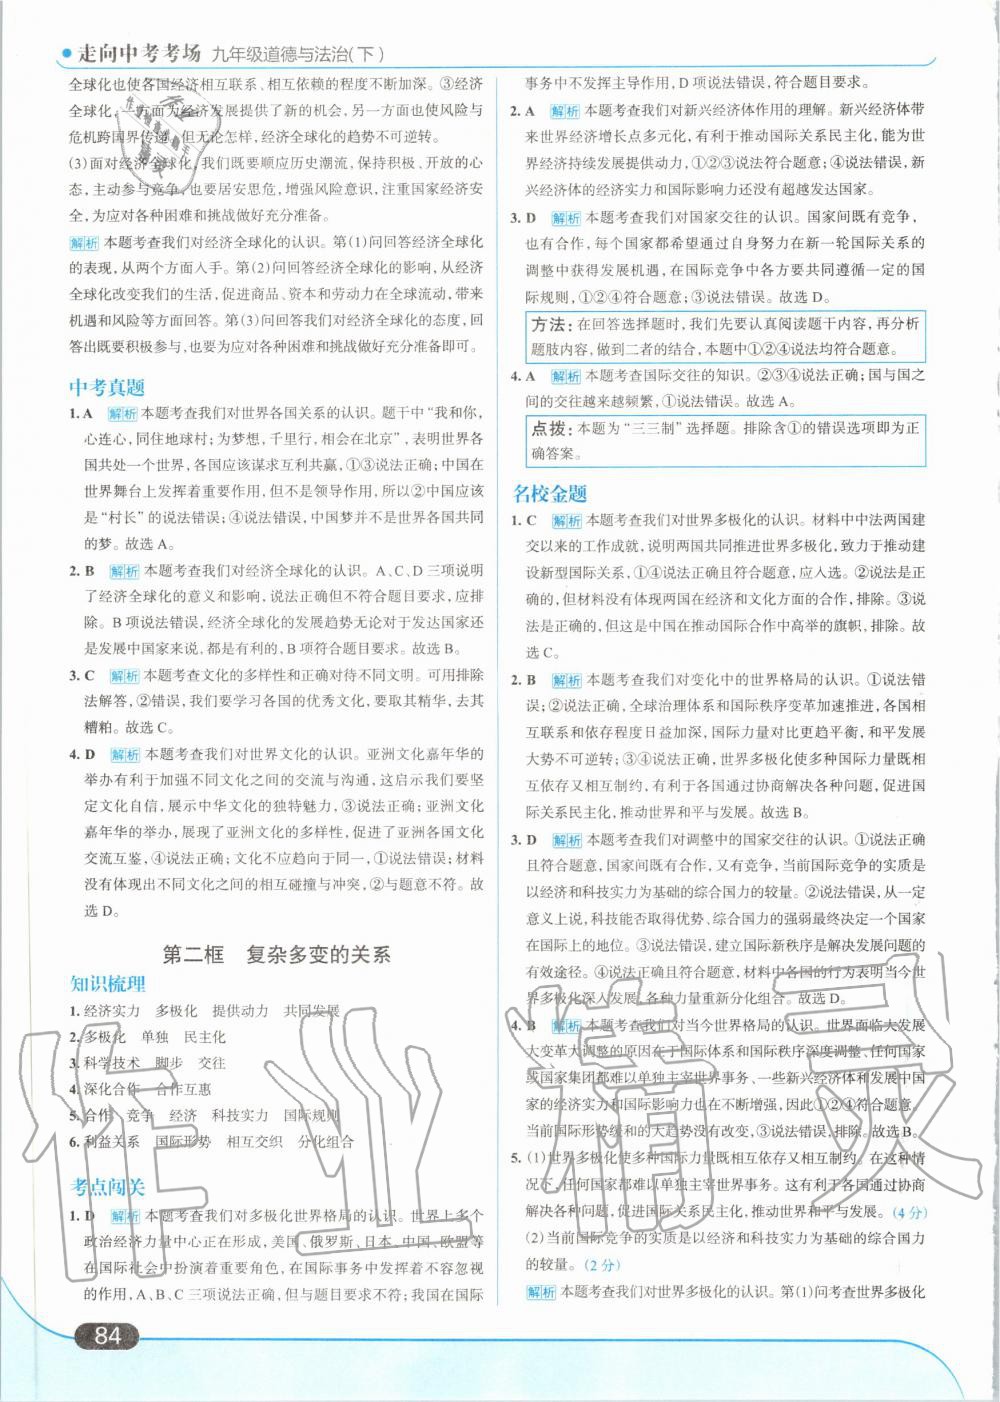 走向中考考场 九年级道德与法治(下)
全球化也使各国经济相互联系、相互依赖的程度不断加深。③经济
全球化,一方面为经济发展提供了新的机会,另一方面也使风险与
危机跨国界传递。但无论怎样,经济全球化的趋势不可逆转。
(3)面对经济全球化,我们既要顺应历史潮流,保持积极、开放的心
态,主动参与竞争,也要居安思危,增强风险意识,注重国家经济安
全,为应对各种困难和挑战做好充分准备。
解析 本题考查我们对经济全球化的认识。第(1)问回答经济全球化
的表现,从两个方面入手。第(2)问回答经济全球化的影响,从经济
全球化改变我们的生活,促进商品、资本和劳动力在全球流动,带来
机遇和风险等方面回答。第(3)问回答我们对经济全球化的态度,回
答出既要积极参与,也要为应对各种困难和挑战做好充分准备即可。
中考真题
1. A 解析 本题考查我们对世界各国关系的认识。题干中“我和你,
心连心,同住地球村;为梦想,千里行,相会在北京”,表明世界各
国共处一个世界,各国应该谋求互利共赢,①③说法正确;中国在
世界舞台上发挥着重要作用,但不是领导作用,所以②中国应该
是“村长”的说法错误;④说法错误,中国梦并不是世界各国共同
的梦。故选 A。
2. B 解析 本题考查我们对经济全球化的认识。A、C、D 三项说明
了经济全球化的意义和影响,说法正确但不符合题目要求,应排
除。B 项说法错误,经济全球化的发展趋势无论对于发达国家还
是发展中国家来说,都是有利的,B 项符合题目要求。故选 B。
3. C 解析 本题考查文化的多样性和正确对待不同文明。可用排除
法解答,②错误,我们要学习各国的优秀文化,要取其精华,去其
糟粕。故选 C。
4. D 解析 本题考查我们对世界文化的认识。亚洲文化嘉年华的
举办有利于加强不同文化之间的交流与沟通,这启示我们要坚
定文化自信,展示中华文化的独特魅力,③说法正确;亚洲文化
嘉年华的举办,展现了亚洲文化的多样性,促进了亚洲各国文化
交流互鉴,④说法正确;文化不应趋向于同一,①说法错误;材料
没有体现出不同文化之间的相互碰撞与冲突,②与题意不符。故
选 D。
第二框 复杂多变的关系
知识梳理
1. 经济实力 多极化 提供动力 共同发展
2. 多极化 单独 民主化
3. 科学技术 脚步 交往
4. 深化合作 合作互惠
5. 合作 竞争 经济 科技实力 国际规则
6. 利益关系 国际形势 相互交织 分化组合
考点闯关
1. D 解析 本题考查我们对多极化世界格局的认识。世界上多个
政治经济力量中心正在形成,美国、俄罗斯、日本、中国、欧盟等
在国际社会中扮演着重要角色,在国际事务中发挥着不容忽视
的作用,A、B、C 三项说法错误,但与题目要求不符;我国在国际
84
事务中不发挥主导作用,D 项说法错误,符合题目要求。
2. A 解析 本题考查我们对新兴经济体作用的理解。新兴经济体带
来世界经济增长点多元化,有利于推动国际关系民主化,能为世
界经济持续发展提供动力,①②③说法符合题意;④说法错误,新
兴经济体的经济实力和国际影响力还没有超越发达国家。
3. D 解析 本题考查我们对国家交往的认识。国家间既有竞争,
也有合作,每个国家都希望通过自身努力在新一轮国际关系的
调整中获得发展机遇,在国际竞争中各方要共同遵循一定的国
际规则,①②④符合题意;③说法错误。故选 D。
方法:在回答选择题时,我们先要认真阅读题干内容,再分析
题肢内容,做到二者的结合,本题中①②④说法均符合题意。
4. A 解析 本题考查国际交往的知识。②③④说法正确;国与国之
间的交往越来越频繁,①说法错误。故选 A。
点拨:本题为“三三制”选择题。排除含①的错误选项即为正
确答案。
名校金题
1. C 解析 本题考查我们对世界多极化的认识。材料中中法两国建
交以来的工作成就,说明两国共同推进世界多极化,致力于推动建
设新型国际关系,①④说法正确且符合题意,应入选。②说法是正
确的,但材料没有体现两国在经济和文化方面的合作,排除。③说
法是正确的,但这是中国在推动国际合作中高举的旗帜,排除。故
选 C。
2. B 解析 本题考查我们对变化中的世界格局的认识。①说法错
误;②说法正确,全球治理体系和国际秩序变革加速推进,各国相
互联系和依存程度日益加深,国际力量对比更趋平衡,和平发展
大势不可逆转;③④说法正确,世界多极化使多种国际力量既相
互依存又相互制约,有利于各国通过协商解决各种问题,促进国
际关系民主化,推动世界和平与发展。故选 B。
3. D 解析 本题考查我们对调整中的国家交往的认识。①说法正确
且符合题意,国家间既有合作,又有竞争,当前国际竞争的实质是
以经济和科技实力为基础的综合国力的较量。②说法错误,从一定
意义上说,科技能否取得优势、综合国力的强弱最终决定一个国家
在国际上的地位。③说法错误,建立国际新秩序是解决发展问题的
有效途径。④说法正确且符合题意,材料中各国的行为表明当今世
界多极化深入发展,各种力量重新分化组合。故选 D。
4. B 解析 本题考查我们对当今世界格局的认识。世界面临大发展
大变革大调整的原因在于国际体系和国际秩序深度调整、任何国家
或国家集团都难以单独主宰世界事务、一些新兴经济体和发展中国
家的经济实力和国际影响力也在不断增强,因此①②④符合题意。
当前国际形势缓和的大趋势没有改变,③说法错误,排除。故选 B。
5. (1)世界多极化使多种国际力量既相互依存又相互制约。在这种情
况下,任何国家都难以单独主宰世界事务。这有利于各国通过协商
解决各种问题,促进国际关系民主化,推动世界和平与发展。(4 分)
(2)当前国际竞争的实质是以经济和科技实力为基础的综合国力
的较量。(2 分)
解析 本题考查我们对世界多极化的认识。第(1)问考查世界多极化
作业精灵